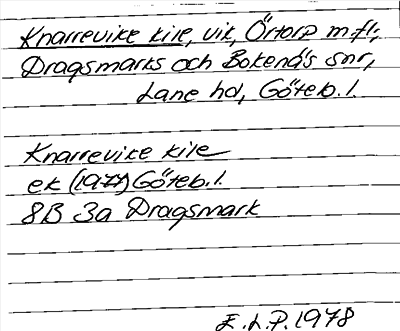 Knarrevike kile, vik, Örtorp m.fl.,
Dragsmarks och Bokenäs snr,
Lane hd, Göteb. l.
Knarrevike kile
ek (1977) Göteb. l.
8B 3a Dragsmark
E.L.P. 1978